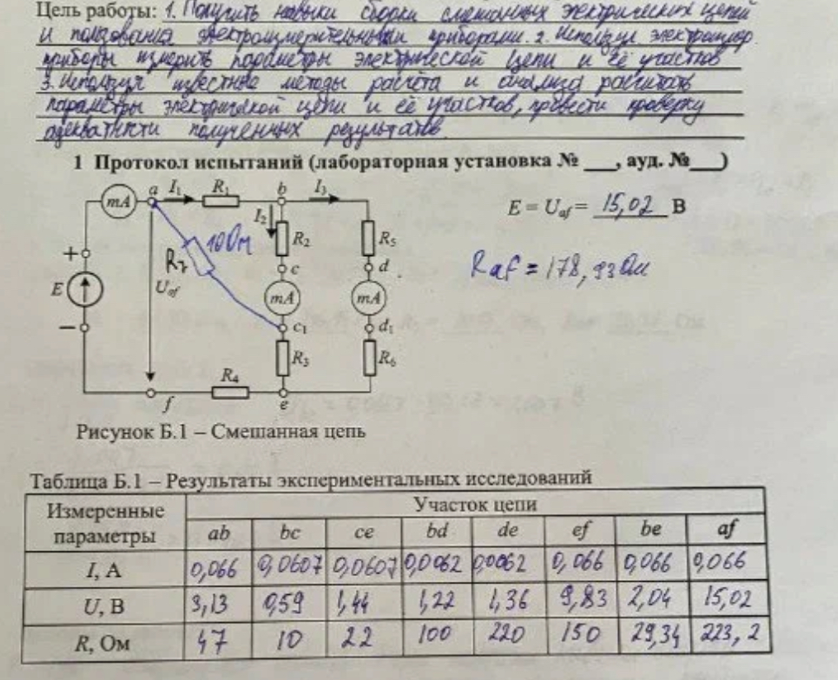 Цель работы: 1. Получить навыки сборки смешанных электрических цепей
и пользования электроизмерительными приборами. 2. Используя электроизмер.
приборы измерить параметры электрической цепи и её участков
3. Используя известные методы расчёта и анализа расчитать
параметры электрической цепи и её участков, провести проверку
адекватности полученных результатов
1 Протокол испытаний (лабораторная установка № ___, ауд. №___)
mA a I1 R1 b I3
E = Uaf = 15,02 В
I2 R2 R5
R7 10Ом
c d
Raf = 178,93 Ом
+ E Uaf mA mA
− c1 d1
R3 R6
R4
f e
Рисунок Б.1 – Смешанная цепь
Таблица Б.1 – Результаты экспериментальных исследований
Измеренные параметры Участок цепи
ab bc ce bd de ef be af
I, А 0,066 0,0607 0,0607 0,0062 0,0062 0,066 0,066 0,066
U, В 3,13 0,59 1,44 1,22 1,36 9,83 2,04 15,02
R, Ом 47 10 22 100 220 150 29,34 223,2